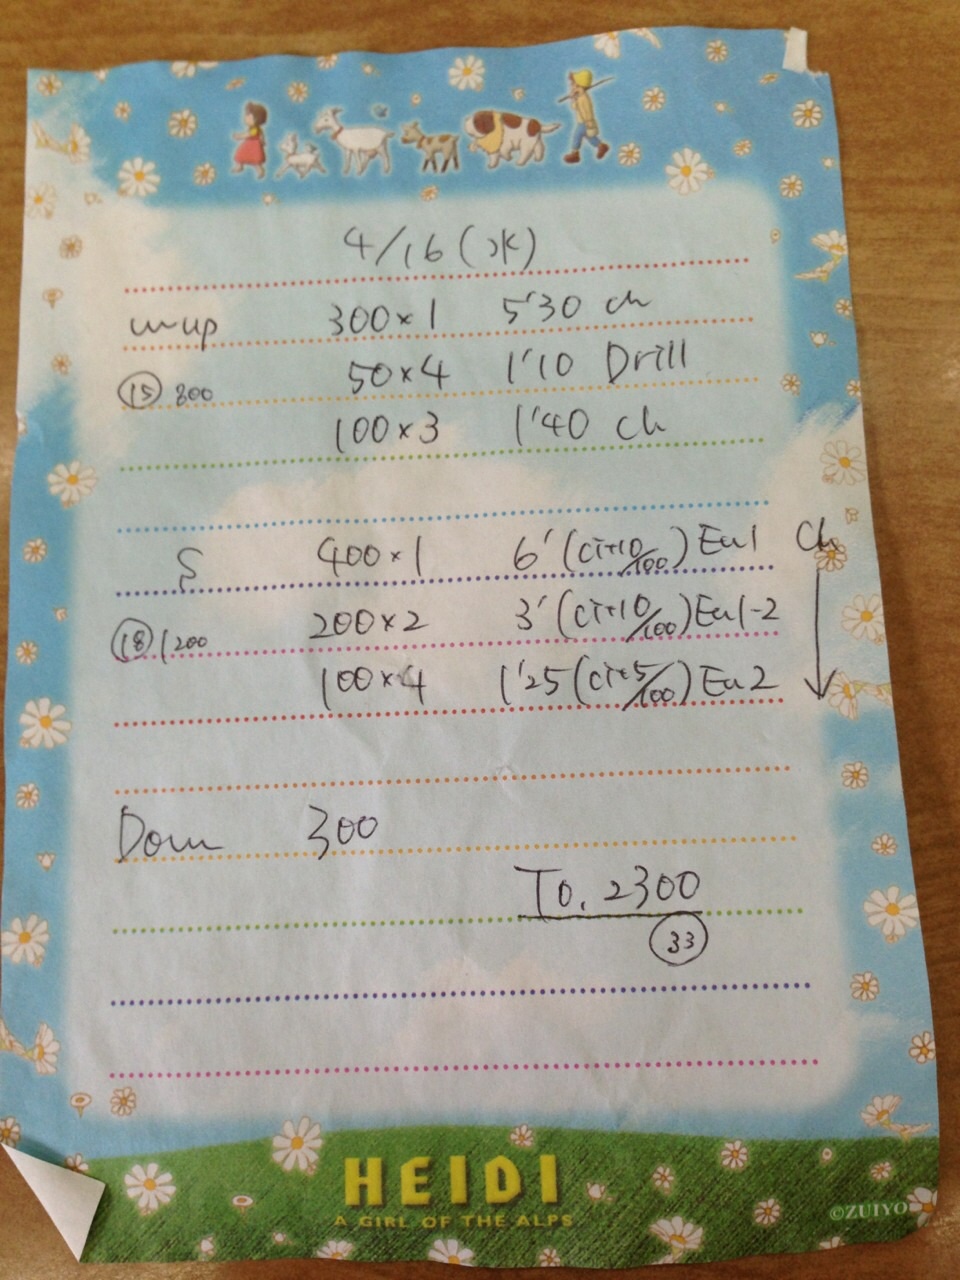 4/16(水)
w-up 300×1 5'30 ch
50×4 1'10 Drill
⑮ 800
100×3 1'40 ch
S 400×1 6' (Ci+10/100) En1 Ch
200×2 3' (Ci+10/100) En1-2
⑱ 1200
100×4 1'25 (Ci+5/100) En2
Down 300
To. 2300
㉝
HEIDI
A GIRL OF THE ALPS
©ZUIYO